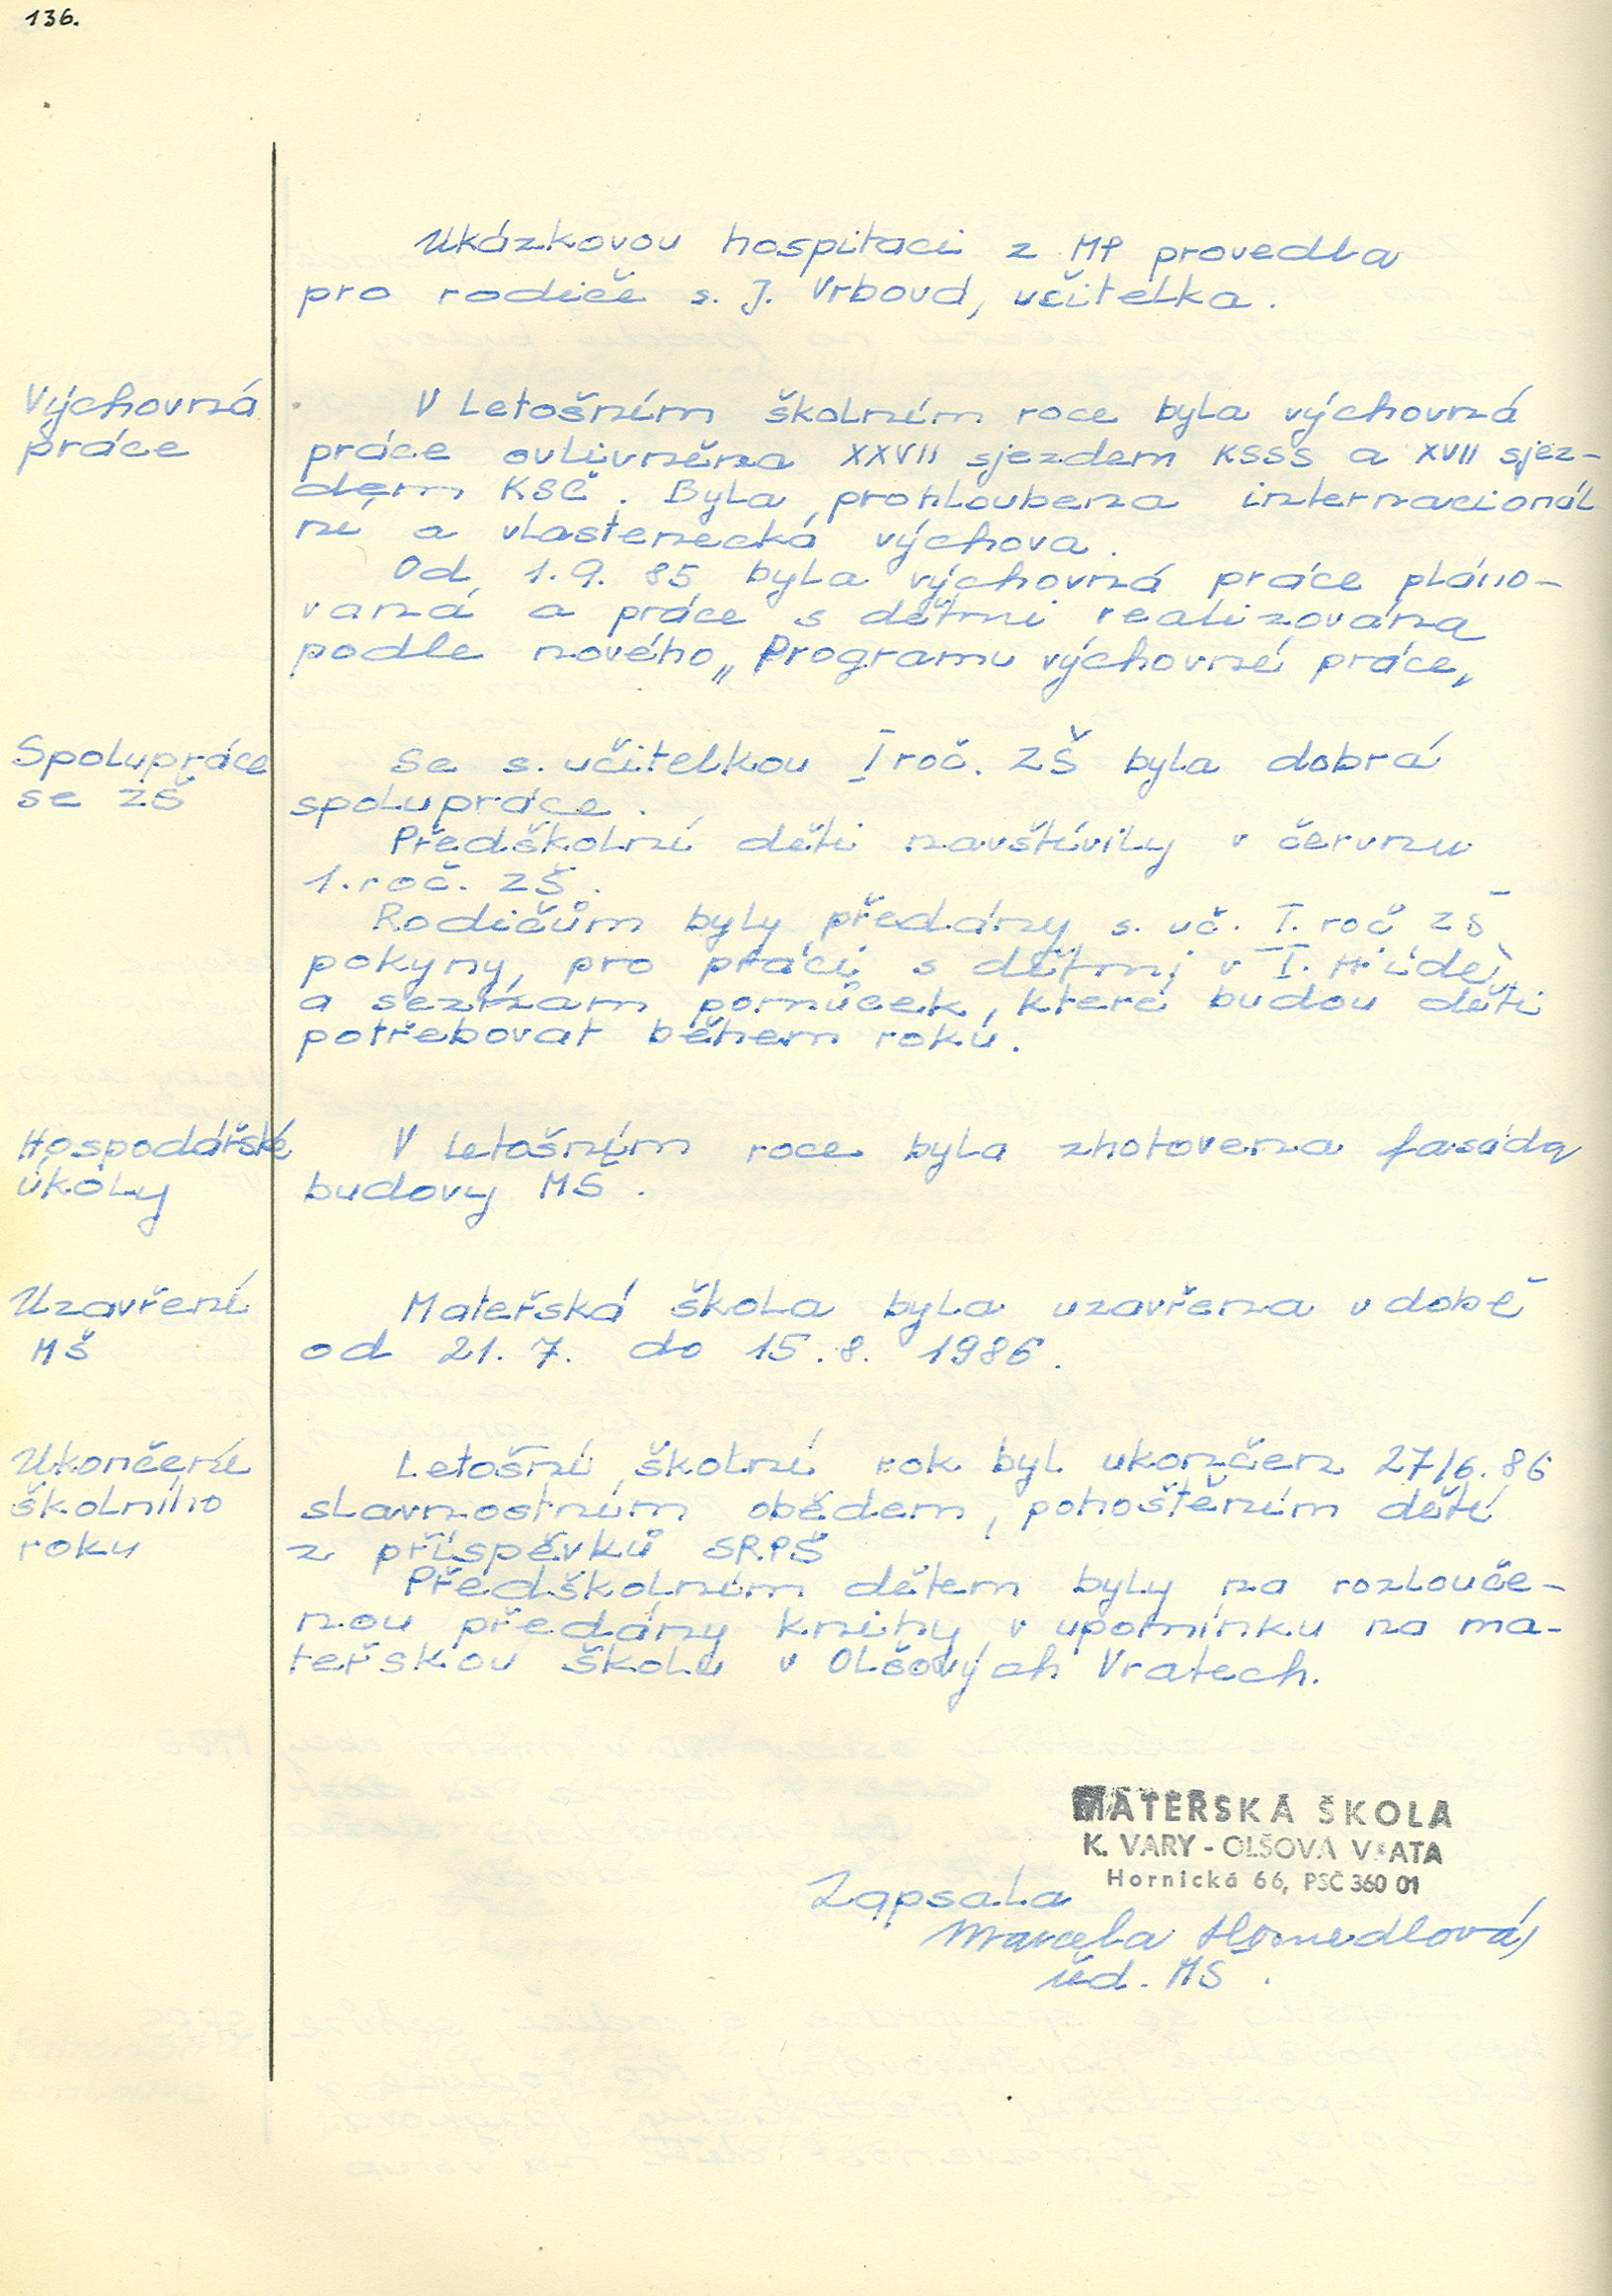 136.
Ukázkovou hospitaci z MP provedla
pro rodiče s. J. Vrbová, učitelka.
Výchovná
práce
V letošním školním roce byla výchovná
práce ovlivněna XXVII sjezdem KSSS a XVII sjez-
dem KSČ. Byla prohloubena internacionál
ní a vlastenecká výchova.
Od 1.9. 85 byla výchovná práce pláno-
vaná a práce s dětmi realizována
podle nového „Programu výchovné práce„
Spolupráce
se ZŠ
Se s. učitelkou I roč. ZŠ byla dobrá
spolupráce.
Předškolní děti navštívily v červnu
1. roč. ZŠ.
Rodičům byly předány s. uč. I. roč ZŠ
pokyny, pro práci s dětmi v I. třídě,
a seznam pomůcek, které budou děti
potřebovat během roku.
Hospodářské
úkoly
V letošním roce byla zhotovena fasáda
budovy MŠ.
Uzavření
MŠ
Mateřská škola byla uzavřena v době
od 21. 7. do 15. 8. 1986.
Ukončení
školního
roku
Letošní školní rok byl ukončen 27/6. 86
slavnostním obědem, pohoštěním dětí
z příspěvků SRPŠ
Předškolním dětem byly na rozlouče-
nou předány knihy v upomínku na ma-
teřskou školu v Olšových Vratech.
MATEŘSKÁ ŠKOLA
K. VARY - OLŠOVÁ VRATA
Hornická 66, PSČ 360 01
Zapsala
Marcela
řed. MŠ.